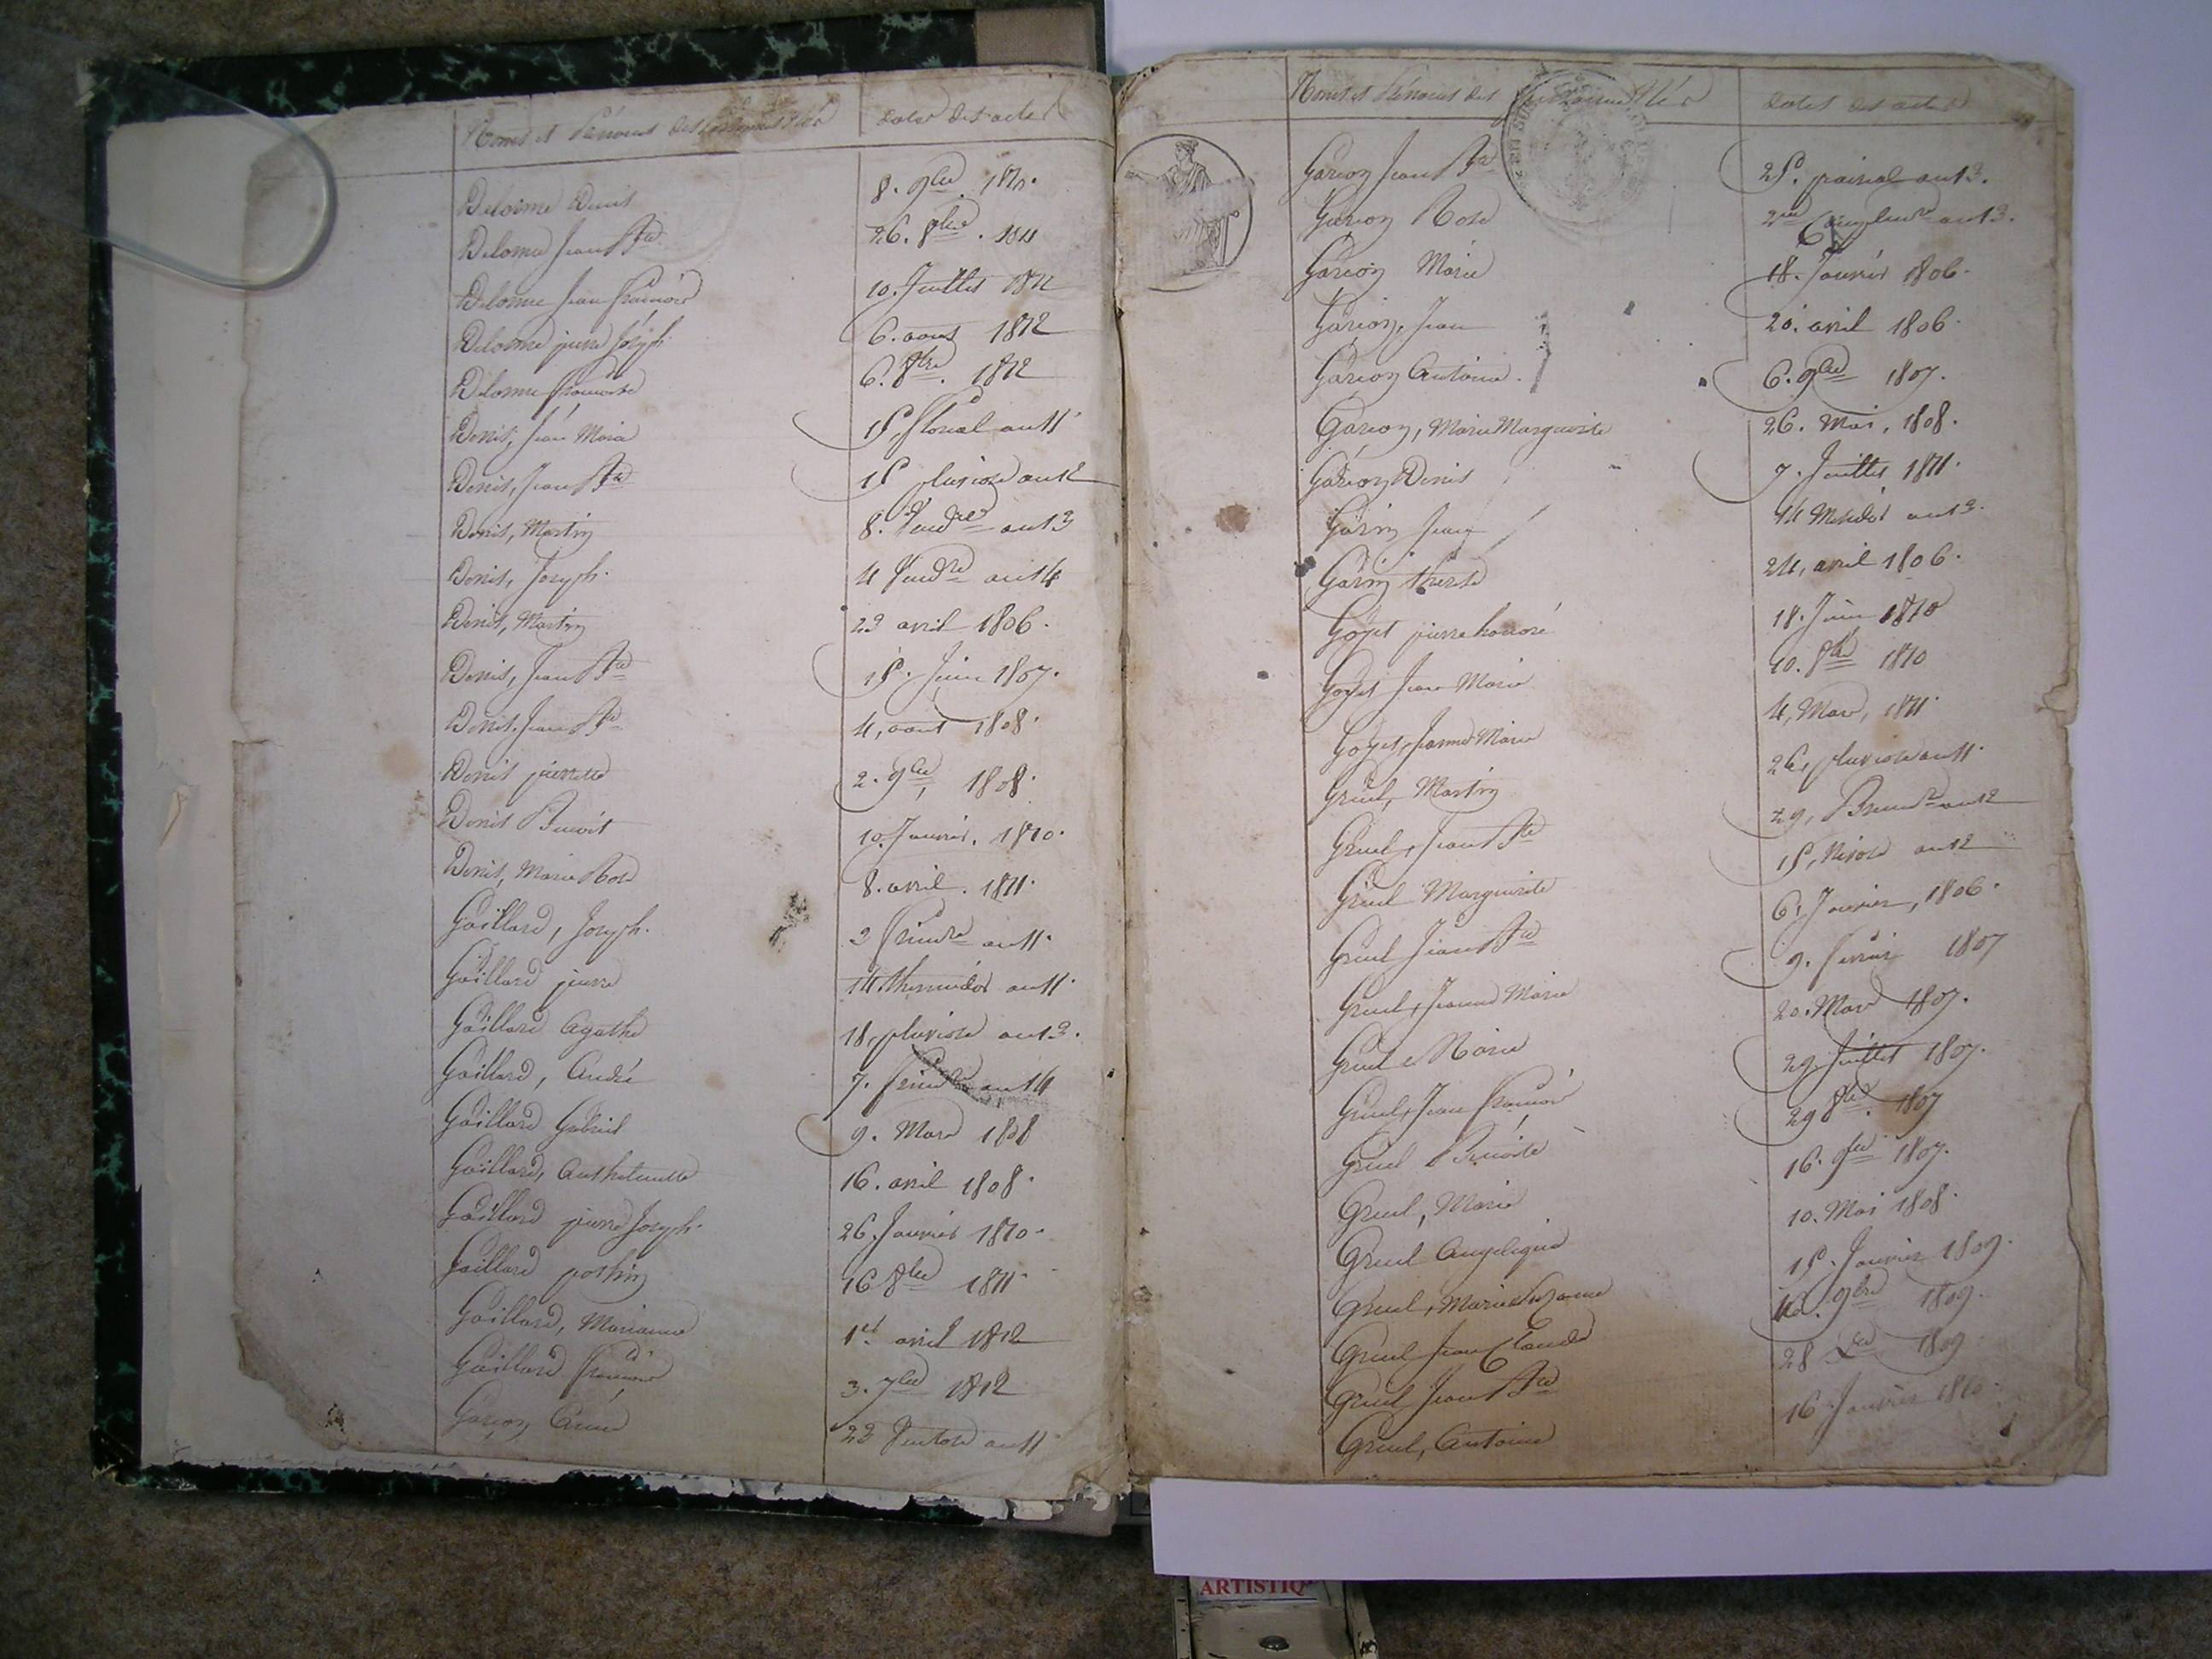 Noms et Prénoms des personnes Nés dates des actes
Delorme Denis 8. 9bre 1810.
Delorme Jean Bte 26. 8bre. 1811
Delorme Jean François 10. Juillet 1812
Delorme pierre Joseph 6. aout 1812
Delorme françoise 6. 8bre. 1812
Denis, Jean Marie 15, floreal an 11
Denis, Jean Bte 15 pluviose an 12
Denis, Martin 8. Vendre an 13
Denis, Joseph. 4 Vendre an 14
Denis, Martin 23 avril 1806.
Denis, Jean Bte 15. Juin 1807.
Denis, Jean Bte 4, aout 1808.
Denis pierrette 2. 9bre, 1808.
Denis Benoit 10. Janvier. 1810.
Denis, Marie Rose 8. avril. 1811.
Gaillard, Joseph. 2 frimre an 11.
Gaillard pierre 14 thermidor an 11.
Gaillard Agathe 18, pluviose an 13.
Gaillard, André 7. frimre an 14
Gaillard Gabriel 9. Mars 1808
Gaillard, Anthelmette 16. avril 1808.
Gaillard pierre Joseph. 26. Janvier 1810.
Gaillard pothin 16 8bre 1811.
Gaillard, Marianne 1er avril 1812
Gaillard François 3. 7bre 1812
Garion 23 Ventose an 11
Noms et Prénoms des personnes Nés dates des actes
Garion Jean Bte 25. prairial an 13.
Garion Rose 2me Complemre an 13.
Garion Marie 18. Janvier 1806.
Garion, Jean 20. avril 1806.
Garion Antoine. 6. 9bre 1807.
Garion, Marie Marguerite 26. Mai, 1808.
Garion Denis 7. Juillet 1811.
Garin Jean 14 Messidor an 13.
Garin therese 24, avril 1806.
Goyet pierre honoré 18. Juin 1810
Goyet Jean Marie 10. 8bre 1810
Goyet, Jeanne Marie 4, Mars, 1811.
Greul, Martin 26, pluviose an 11.
Greul, Jean Bte 29, Brumre an 12
Greul Marguerite 15, Nivose an 12
Greul Jean Bte 6, Janvier, 1806.
Greul, Jeanne Marie 9. fevrier 1807
Greul Marie 20. Mars 1807.
Greul, Jean François 29. Juillet 1807.
Greul Benoite 29 8bre. 1807
Greul, Marie 16. 9bre 1807.
Greul Angelique 10. Mai 1808.
Greul, Marie Suzanne 15. Janvier 1809.
Greul Jean Claude 9bre 1809.
Greul Jean Bte 28 1809
Greul, Antoine 16 Janvier 1810.
ARTISTIQ